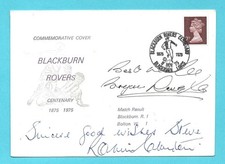 COMMEMORATIVE COVER
BLACKBURN
ROVERS
CENTENARY
1875 1975
BLACKBURN ROVERS CENTENARY
1875 1975
Best wishes
Bryan Douglas
Match Result
Blackburn R. 1
Bolton W. 1
Sincere good wishes Steve
Ronnie Clayton